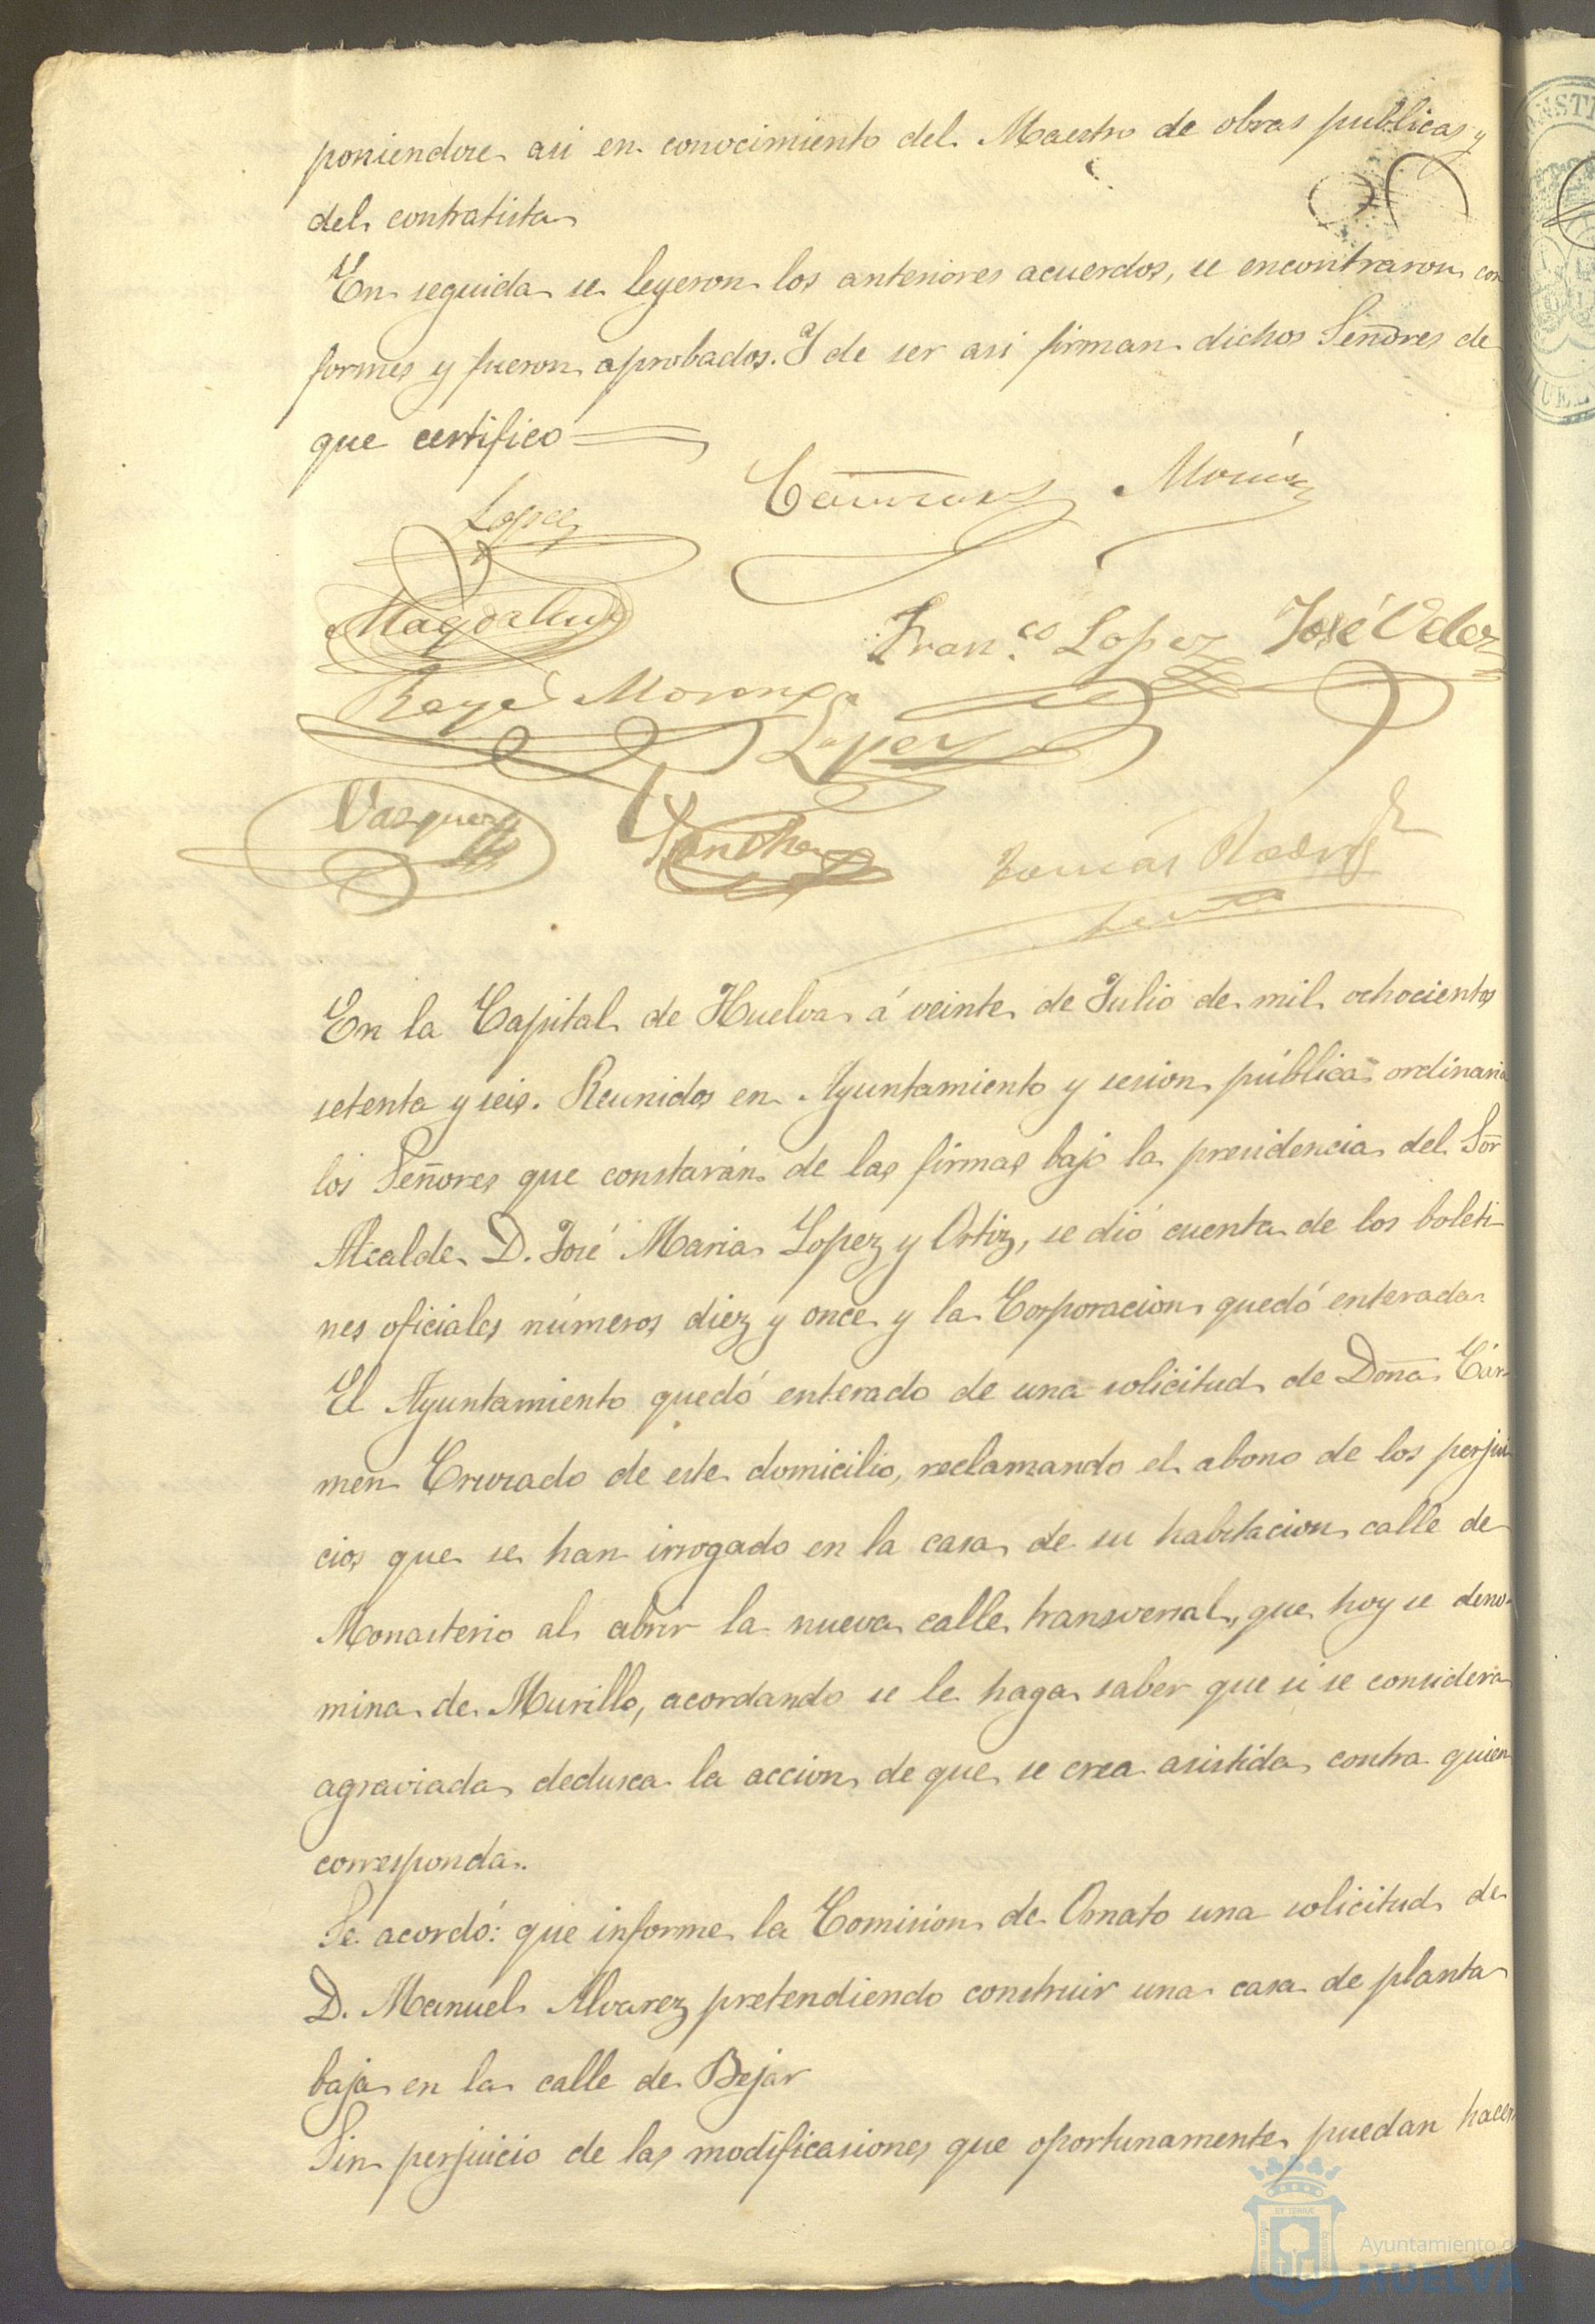 poniendose asi en conocimiento del Maestro de obras publicas y
del contratista
En seguida se leyeron los anteriores acuerdos, se encontraron con
formes y fueron aprobados. Y de ser asi firman dichos Señores de
que certifico
Lopez
Morián
Magdalena
Fran.co Lopez
José Velez
Moreno
Lopez
Vazquez
Sanchez
Tomás Rodrig
En la Capital de Huelva á veinte de Julio de mil ochocientos
setenta y seis. Reunidos en Ayuntamiento y sesion pública ordinaria
los Señores que constarán de las firmas bajo la presidencia del Sor
Alcalde D. José Maria Lopez y Ortiz, se dió cuenta de los boleti
nes oficiales números diez y once y la Corporacion quedó enterada
El Ayuntamiento quedó enterado de una solicitud de Doña Cár
men Cruzado de este domicilio, reclamando el abono de los perjui
cios que se han irrogado en la casa de su habitacion calle de
Monasterio al abrir la nueva calle transversal, que hoy se deno
mina de Murillo, acordando se le haga saber que si se considera
agraviada deduzca la accion de que se crea asistida contra quien
corresponda.
Se acordó: que informe la Comision de Ornato una solicitud de
D. Manuel Alvarez pretendiendo construir una casa de planta
baja en la calle de Bejar
Sin perjuicio de las modificasiones que oportunamente puedan hacer
Ayuntamiento de
HUELVA